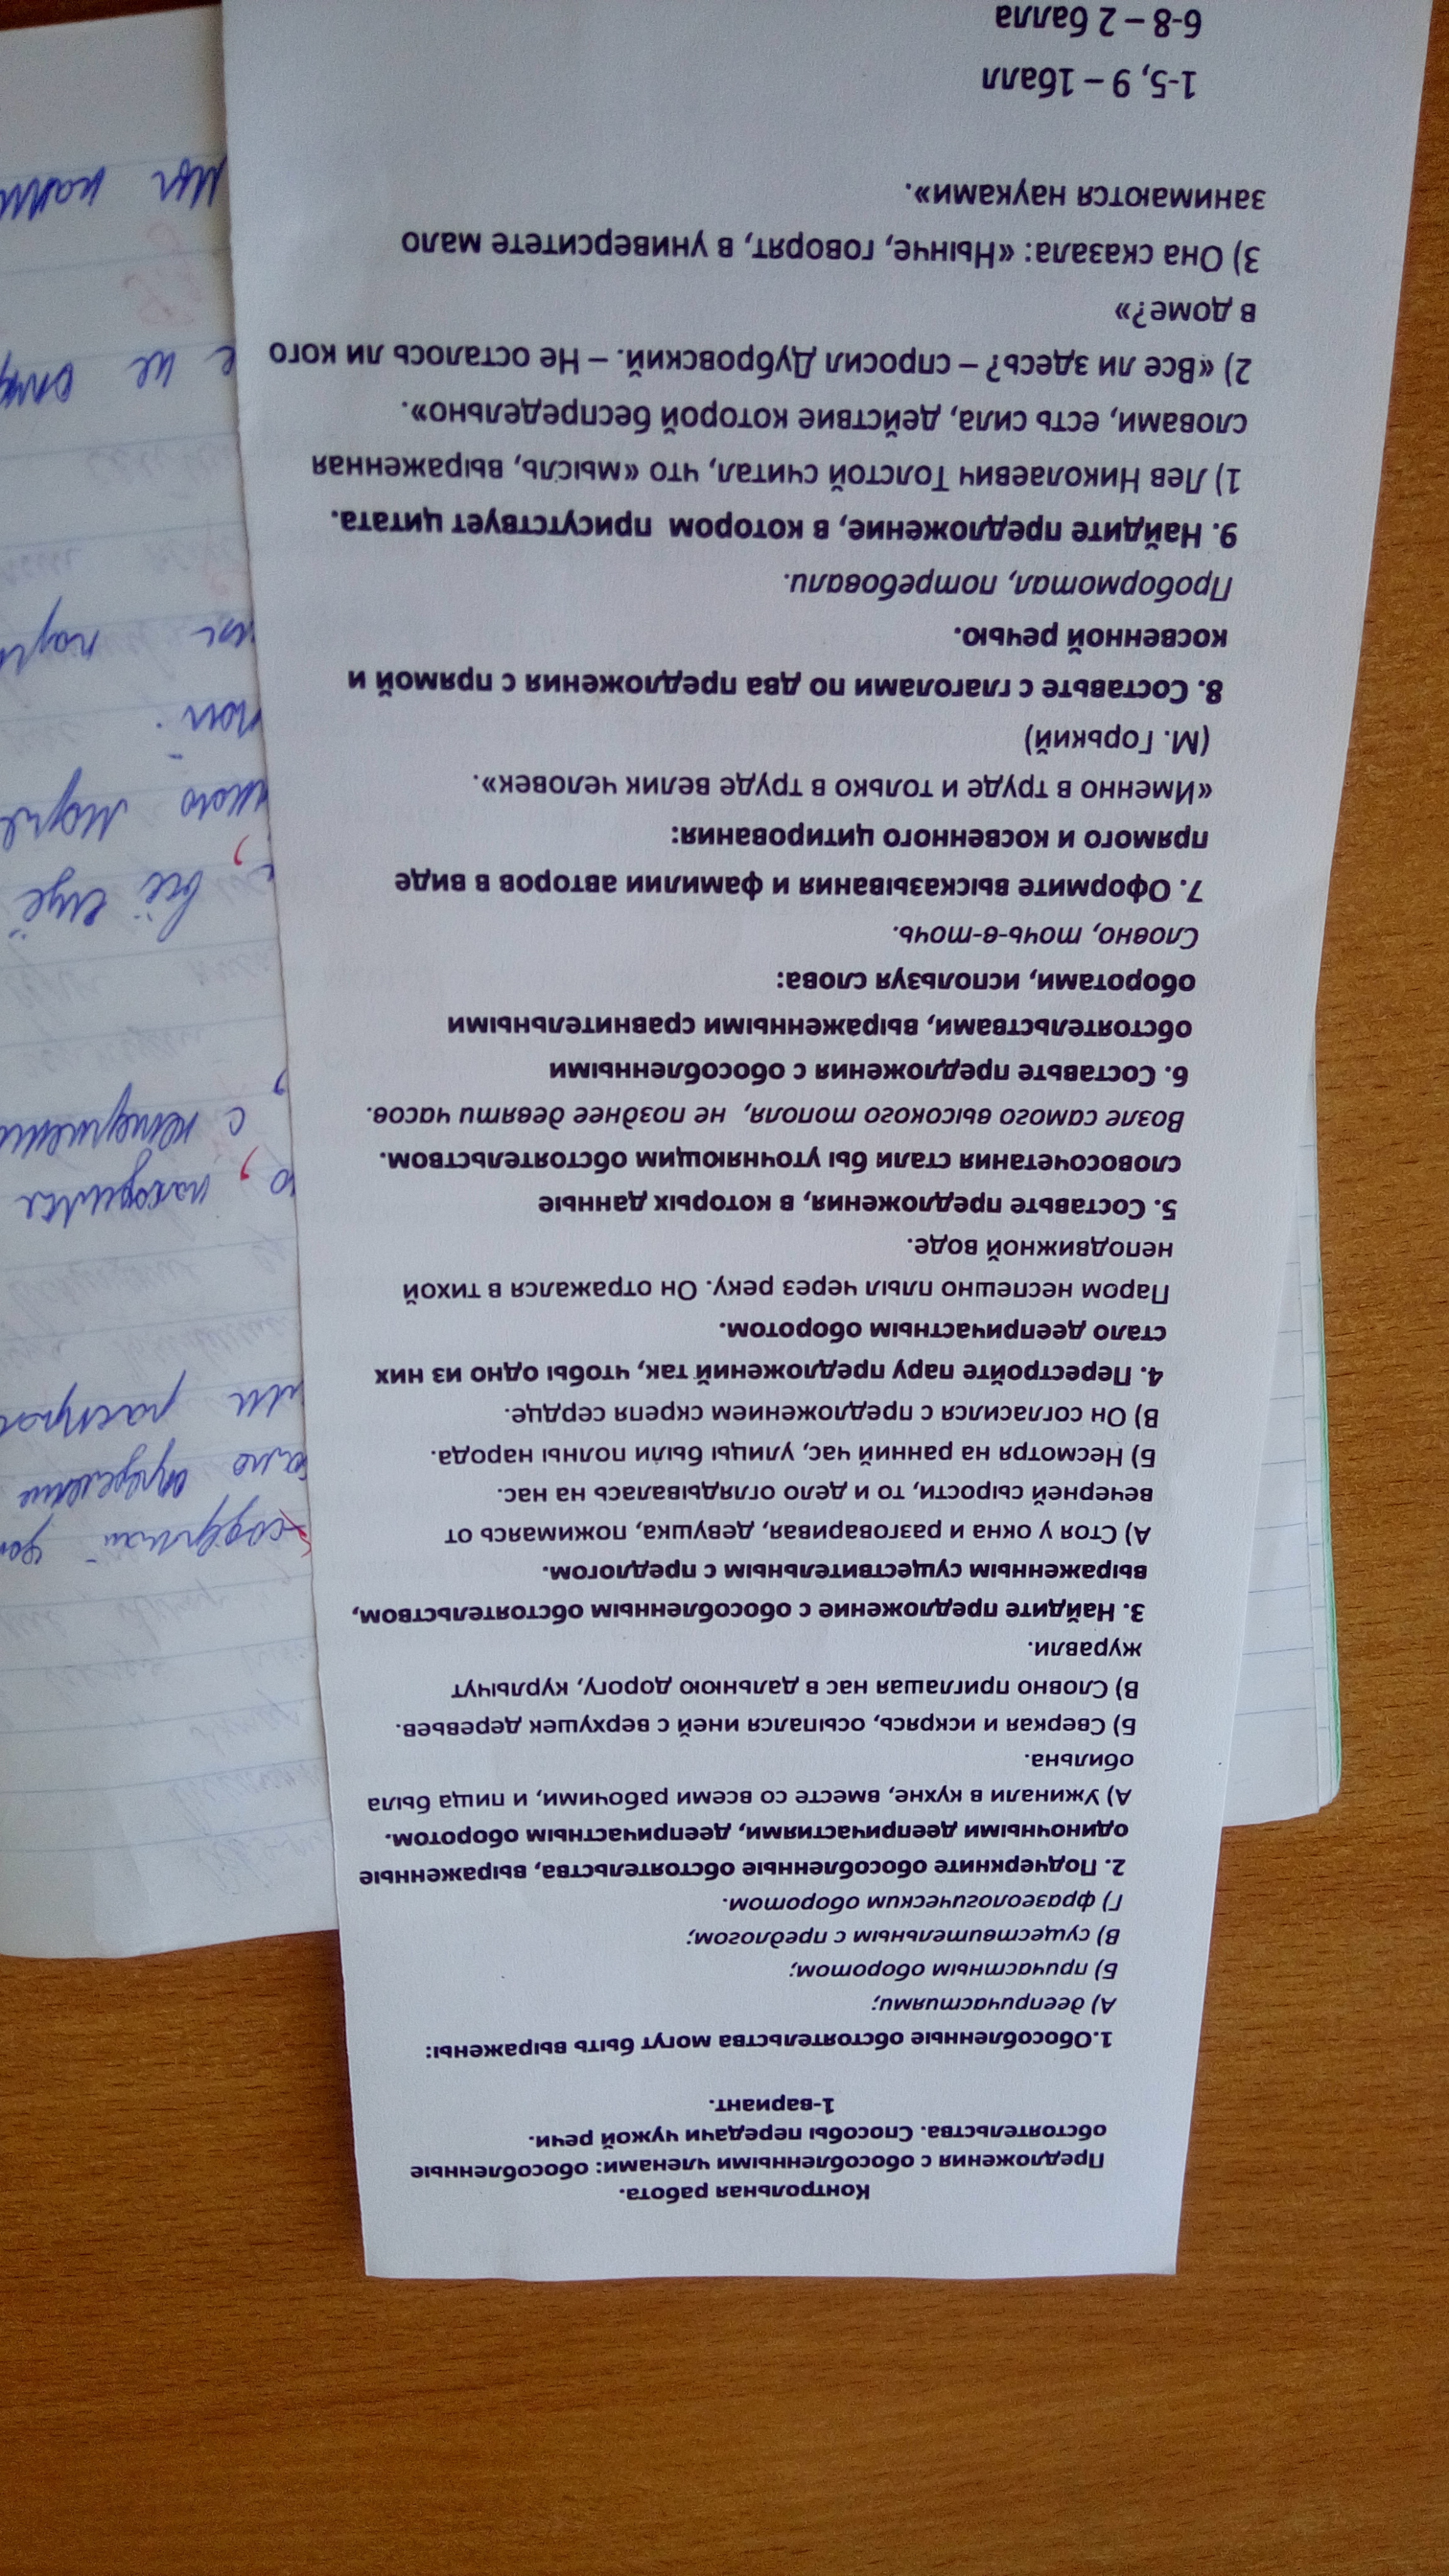 Контрольная работа.
Предложения с обособленными членами: обособленные
обстоятельства. Способы передачи чужой речи.
1-вариант.
1.Обособленные обстоятельства могут быть выражены:
А) деепричастиями;
Б) причастным оборотом;
В) существительным с предлогом;
Г) фразеологическим оборотом.
2. Подчеркните обособленные обстоятельства, выраженные
одиночными деепричастиями, деепричастным оборотом.
А) Ужинали в кухне, вместе со всеми рабочими, и пища была
обильна.
Б) Сверкая и искрясь, осыпался иней с верхушек деревьев.
В) Словно приглашая нас в дальнюю дорогу, курлычут
журавли.
3. Найдите предложение с обособленным обстоятельством,
выраженным существительным с предлогом.
А) Стоя у окна и разговаривая, девушка, пожимаясь от
вечерней сырости, то и дело оглядывалась на нас.
Б) Несмотря на ранний час, улицы были полны народа.
В) Он согласился с предложением скрепя сердце.
4. Перестройте пару предложений так, чтобы одно из них
стало деепричастным оборотом.
Паром неспешно плыл через реку. Он отражался в тихой
неподвижной воде.
5. Составьте предложения, в которых данные
словосочетания стали бы уточняющим обстоятельством.
Возле самого высокого тополя, не позднее девяти часов.
6. Составьте предложения с обособленными
обстоятельствами, выраженными сравнительными
оборотами, используя слова:
Словно, точь-в-точь.
7. Оформите высказывания и фамилии авторов в виде
прямого и косвенного цитирования:
«Именно в труде и только в труде велик человек».
(М. Горький)
8. Составьте с глаголами по два предложения с прямой и
косвенной речью.
Пробормотал, потребовали.
9. Найдите предложение, в котором присутствует цитата.
1) Лев Николаевич Толстой считал, что «мысль, выраженная
словами, есть сила, действие которой беспредельно».
2) «Все ли здесь? – спросил Дубровский. – Не осталось ли кого
в доме?»
3) Она сказала: «Нынче, говорят, в университете мало
занимаются науками».
1-5, 9 – 1балл
6-8 – 2 балла
находился
с
всё ещё